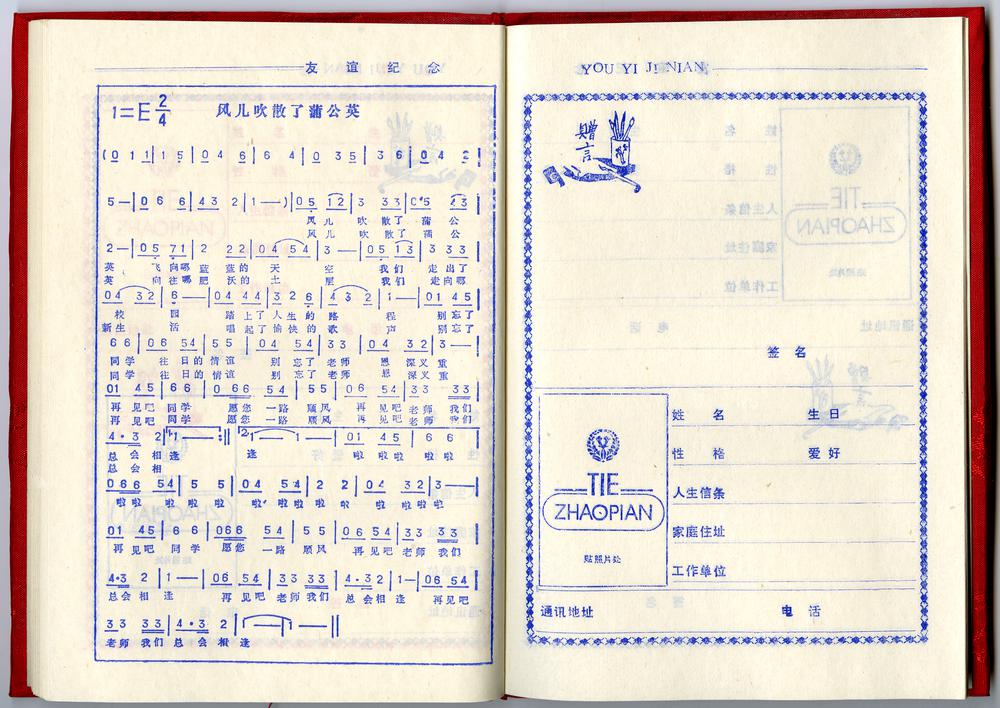 友 谊 纪 念
1=E 2/4 风儿吹散了蒲公英
(0 1 1|1 5|0 4 6|6 4|0 3 5|3 6|0 4 2|
5 —|0 6 6|4 3 2|1 —)|0 5 1 2|3 3 3|0 5 2 3|
风 儿 吹 散 了 蒲 公
风 儿 吹 散 了 蒲 公
2 —|0 5 7 1|2 2 2|0 4 5 4|3 —|0 5 1 3|3 3 3|
英 飞向哪 蓝 蓝的 天 空 我们 走出了
英 向往哪 肥 沃的 土 里 我们 走向哪
0 4 3 2|6 —|0 4 4 4|3 2 6|4 3 2|1 —|0 1 4 5|
校 园 踏上了人生的路 程 别忘了
新生 活 唱起了愉快的歌 声 别忘了
6 6|0 6 5 4|5 5|0 4 5 4|3 3|0 4 3 2|3 —|
同学 往日的情谊 别忘了老师 恩深义重
同学 往日的情谊 别忘了老师 恩深义重
0 1 4 5|6 6|0 6 6 5 4|5 5|0 6 5 4|3 3 3 3|
再见吧 同学 愿您一路 顺风 再见吧老师 我们
再见吧 同学 愿您一路 顺风 再见吧老师 我们
4·3 2|1.1 —:‖2.1 —|1 —|0 1 4 5|6 6|
总会相逢 逢 啦啦啦啦啦
总会相
0 6 6 5 4|5 5|0 6 5 4|2 2|0 4 3 2|3 —|
啦啦啦啦啦 啦啦啦啦啦 啦啦啦啦
0 1 4 5|6 6|0 6 6 5 4|5 5|0 6 5 4|3 3 3 3|
再见吧 同学 愿您一路 顺风 再见吧老师 我们
4·3 2|1 —|0 6 5 4|3 3 3 3|4·3 2|1 —|0 6 5 4|
总会相逢 再见吧老师我们 总会相逢 再见吧
3 3 3 3|4·3 2|1 —|1 —‖
老师 我们 总会相逢
YOU YI JI NIAN
赠言
签 名
TIE
ZHAOPIAN
贴照片处
姓 名 生 日
性 格 爱 好
人生信条
家庭住址
工作单位
通讯地址 电 话